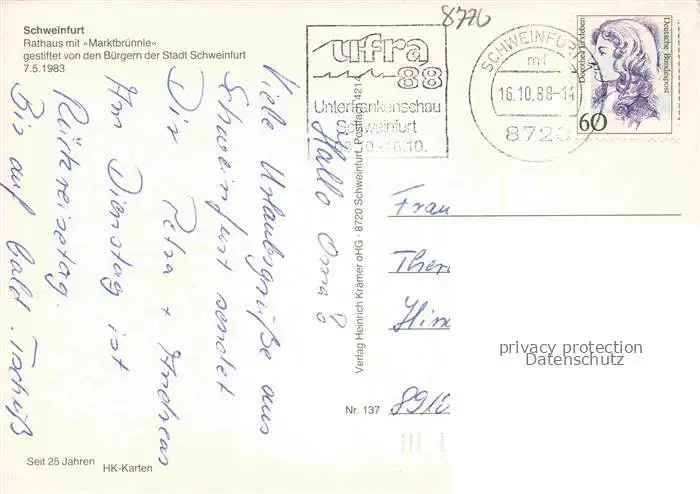 Schweinfurt
Rathaus mit »Marktbrünnle«
gestiftet von den Bürgern der Stadt Schweinfurt
7.5.1983
8770
ufra
88
Unterfrankenschau
Schweinfurt
SCHWEINFURT
mf
16.10.88-1
8720
Dorothea Erxleben
Deutsche Bundespost
60
Hallo Oma!
Viele Urlaubsgrüße aus
Schweinfurt sendet
Dir Petra + Andreas
Am Dienstag ist
Rückreisetag.
Bis auf bald. Tschüß
Verlag Heinrich Krämer oHG · 8720 Schweinfurt, Postfach 4214
Frau
Ther
Hin
8910
privacy protection
Datenschutz
Nr. 137
Seit 25 Jahren
HK-Karten